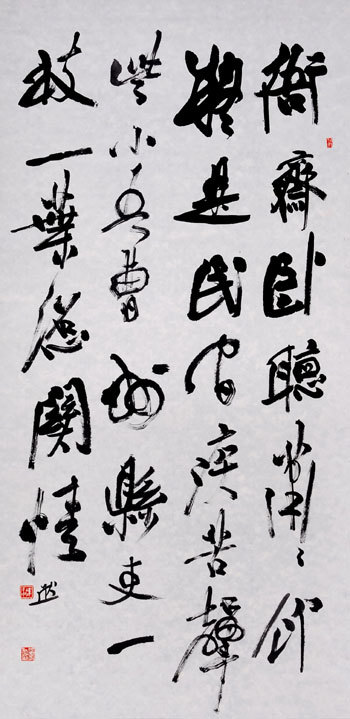 衙齋卧聽蕭〻竹
疑是民间疾苦聲
些小吾曹州縣吏一
枝一葉總關情